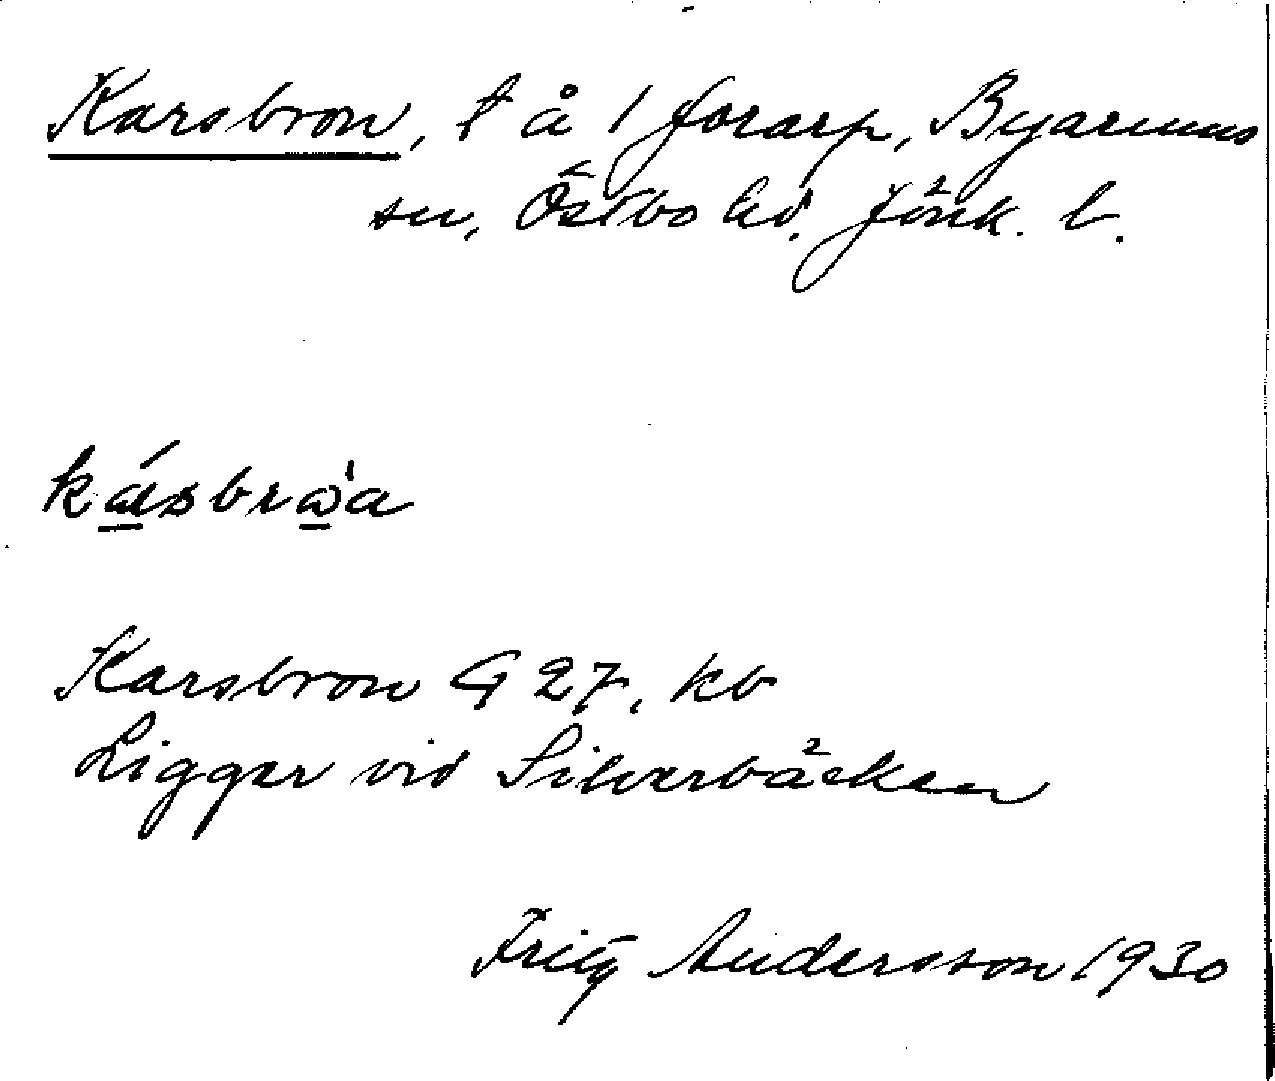 Karsbron, t å 1 forarp, Byarums
sn, Östbo hd. Jönk. l.
kásbrɷ̀a
Karsbron G 27. kb
Ligger vid Silverbäcken
Fritz Andersson 1930